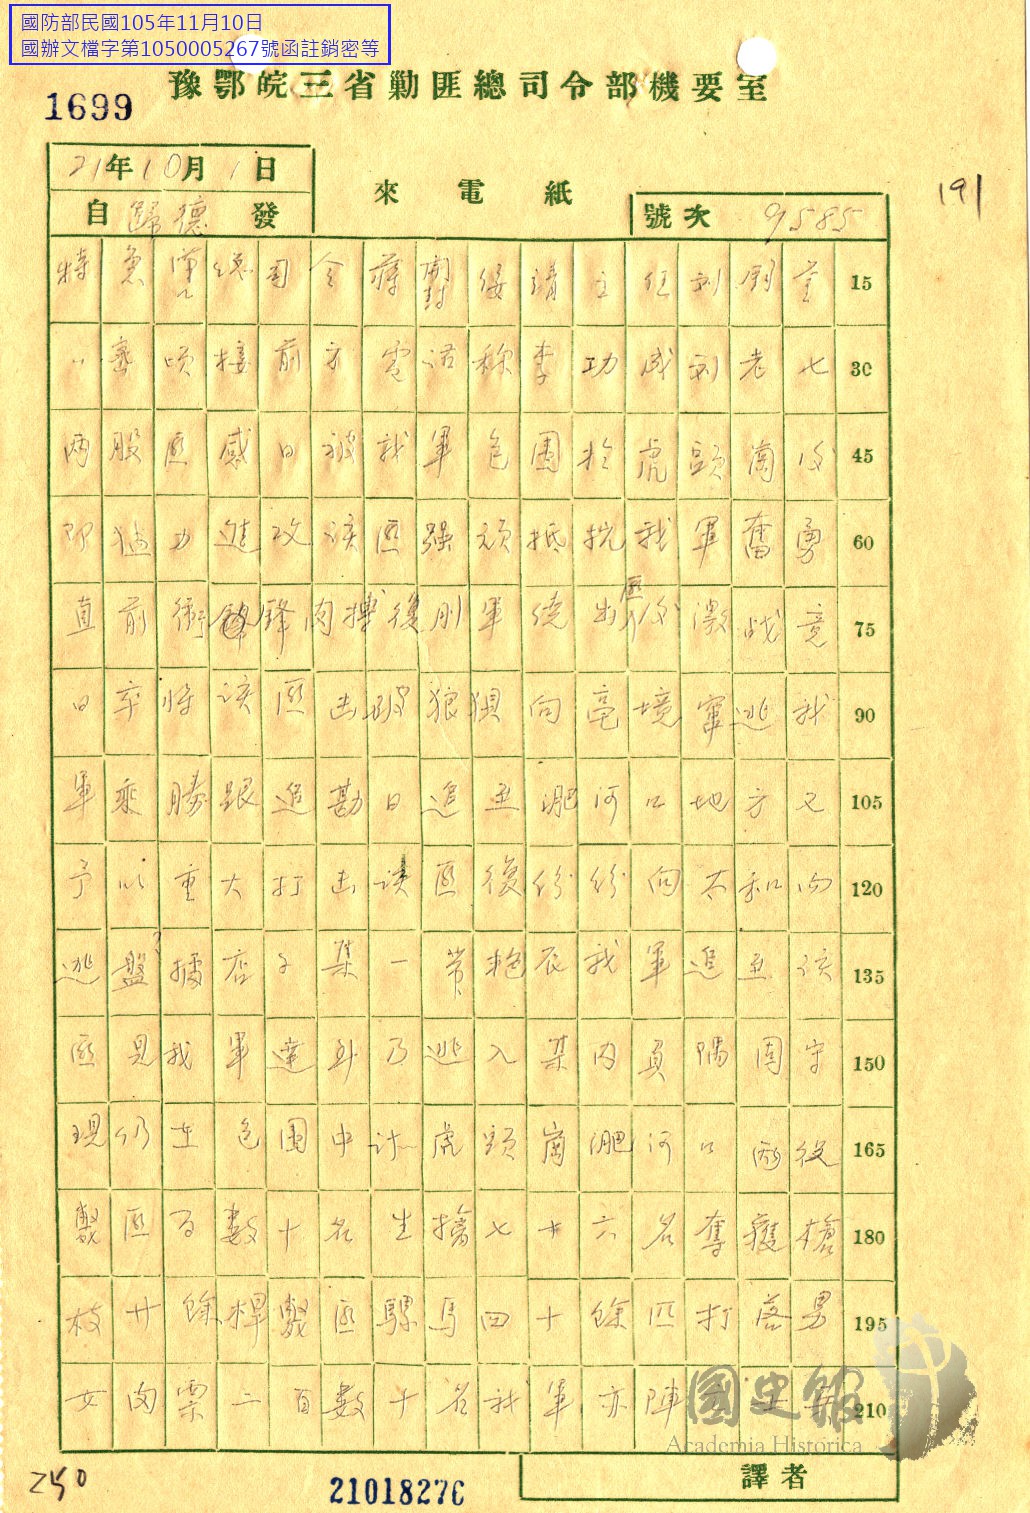 國防部民國105年11月10日
國辦文檔字第1050005267號函註銷密等
豫鄂皖三省勦匪總司令部機要室
1699
21年10月1日
來電紙
191
自歸德發
號次 9585
特急漢口總司令蔣開封綏靖主任刘鈞鑒 15
密頃接前方電話称李功成刘老七 30
两股匪感日被我軍包圍於虎頭崗後 45
即猛力進攻该匪强頑抵抗我軍奮勇 60
直前衝鋒肉搏復刚軍繞出匪後激战竟 75
日卒將该匪击破狼狽向亳境竄逃我 90
軍乘勝跟追勘日追至淝河口地方又 105
予以重大打击该匪復纷纷向太和向 120
逃盤據店子集一带艳辰我軍追至该 135
匪見我軍達到乃逃入集内負隅固守 150
現仍在包圍中计虎頭崗淝河口兩役 165
斃匪百数十名生擒七十六名奪獲槍 180
枝廿餘桿斃匪騾馬四十餘匹打落男 195
女肉票二百数十名我軍亦陣 210
國史館
Academia Historica
250
21018276
譯者